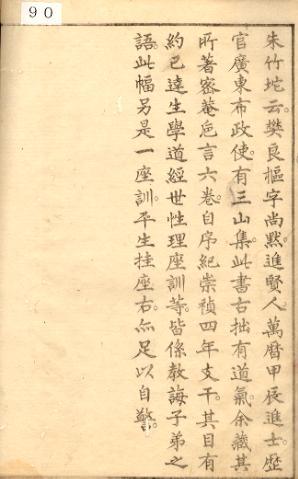 90
朱竹坨云。樊良樞字尚黙。進賢人。萬曆甲辰進士。歷
官廣東布政使。有三山集。此書古拙有道氣。余藏其
所著密菴巵言六卷。自序紀崇禎四年支干。其目有
約已達生學道經世性理座訓等。皆係教誨子弟之
語。此幅另是一座訓。平生挂座右。亦足以自警。